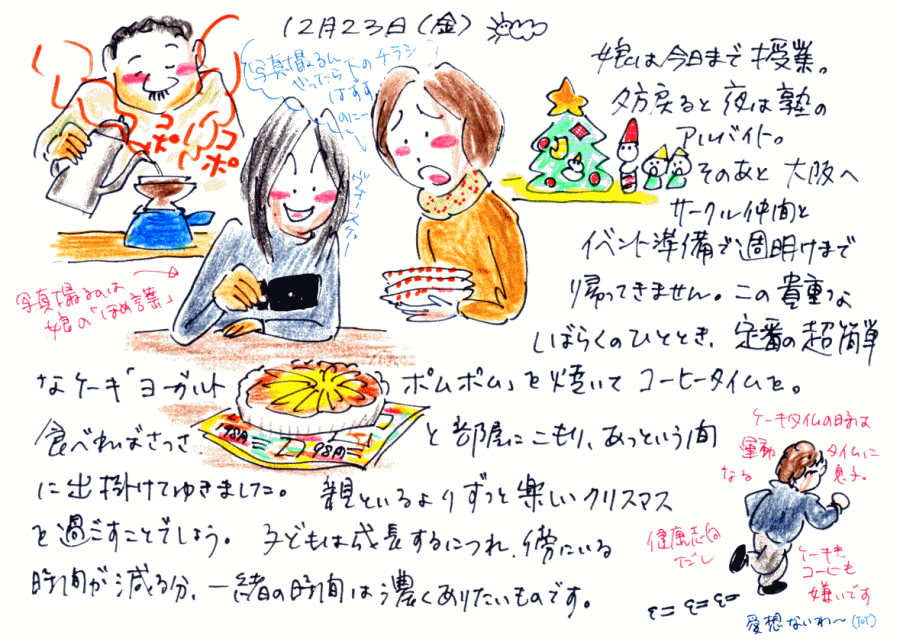 12月23日(金)
娘は今日まで授業。
夕方戻ると夜は塾の
アルバイト。
そのあと 大阪へ
サークル仲間と
イベント準備で週明けまで
帰ってきません。この貴重な
しばらくのひととき、定番の超簡単
なケーキ「ヨーグルト ポムポム」を焼いて コーヒータイムを。
食べればさっさ と部屋にこもり、あっという間
に出掛けてゆきました。 親といるよりずっと楽しいクリスマス
を過ごすことでしょう。 子どもは成長するにつれ、傍にいる
時間が減る分、一緒の時間は濃くありたいものです。
写真撮るん
やったら下のチラシ
はずす
のにー
コポ
コポ
写真撮るのは
娘の「ほめ言葉」
198円
98円
ケーキタイムの時は
運動 タイムに
なる 息子。
健康志向
だし
ケーキも
コーヒーも
嫌いです
愛想ないわ〜(ToT)